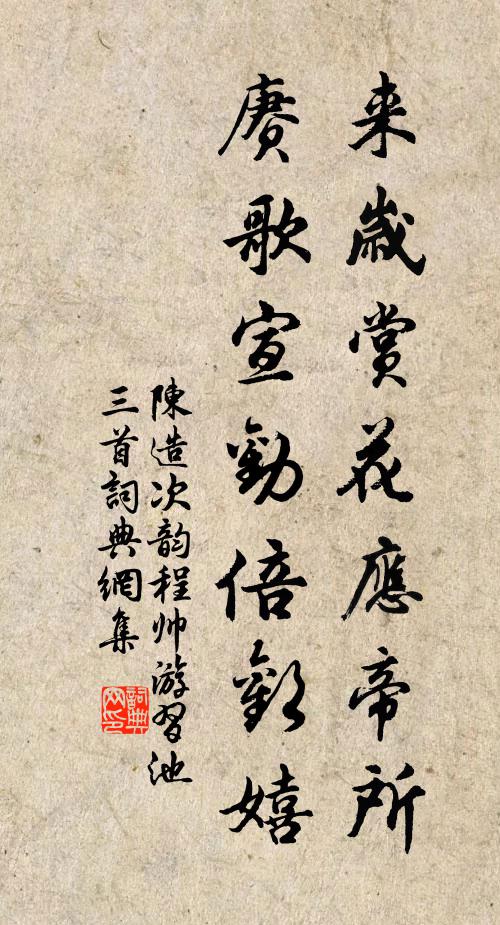 来歲賞花應帝所
賡歌宣勸倍歡嬉
陳造次韵程帅游習池
三首詞典網集
詞典网印